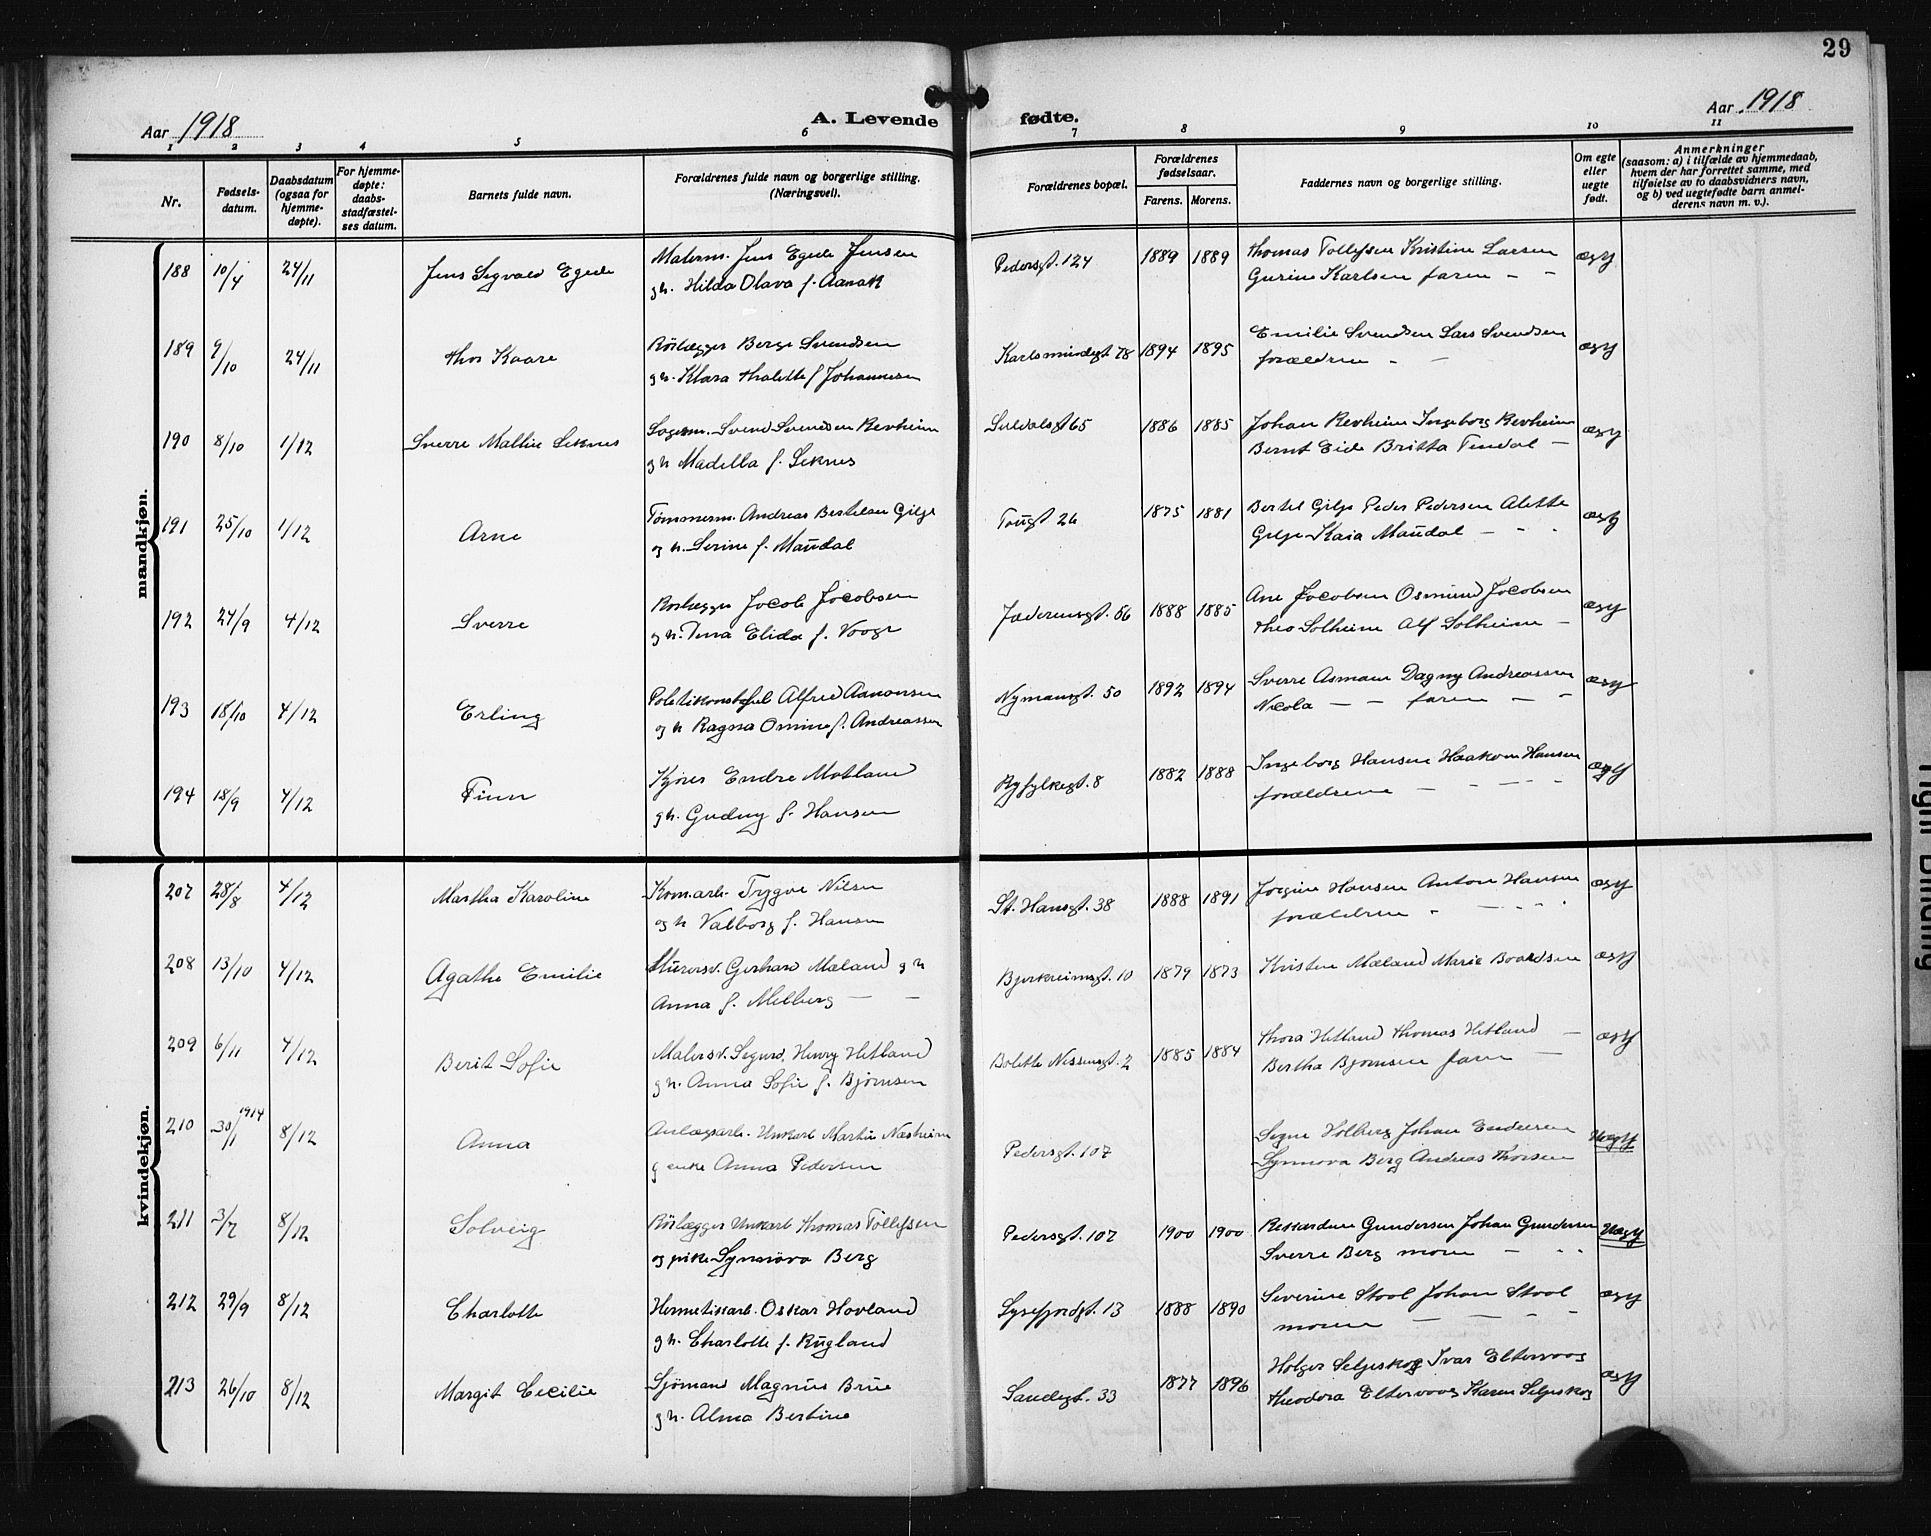 29
Aar 1918
A. Levende fødte.
Aar 1918
1 2 3 4 5 6 7 8 9 10 11
Nr.
Fødsels-
datum.
Daabsdatum
(ogsaa for
hjemme-
døpte).
For hjemme-
døpte:
daabs-
stadfæstel-
ses datum.
Barnets fulde navn.
Forældrenes fulde navn og borgerlige stilling.
(Næringsvei).
Forældrenes bopæl.
Forældrenes
fødselsaar.
Farens. Morens.
Faddernes navn og borgerlige stilling.
Om egte
eller
uegte
født.
Anmerkninger
(saasom: a) i tilfælde av hjemmedaab,
hvem der har forrettet samme, med
tilføielse av to daabsvidners navn,
og b) ved uegtefødte barn anmel-
derens navn m. v.).
mandkjøn.
188 10/4 24/11 Jens Sigvald Egede
Malerm. Jens Egede Jensen
g h. Hilda Olava f. Aanatt
Pedersgt. 124 1889 1889
Thomas Tollefsen Kristine Larsen
Gurine Karlsen faren – –
ægt
189 9/10 24/11 Thor Kaare
Rörlægger Berge Svendsen
g h. Klara Thalette f Johannesen
Karlsmindegt 78 1894 1895
Emilie Svendsen Lars Svendsen
forældrene – –
ægt
190 8/10 1/12 Sverre Mallin Seknes
Svend Svendsen Revheim
g h Madella f. Seknes
Suldalsgt 65 1886 1885
Johan Revheim Ingeborg Revheim
Bernt Eide Britta Tendal –
ægt
191 25/10 1/12 Arne
Tømmerm. Andreas Bertelsen Gilje
og h. Serine f. Maudal
Tougt 26 1875 1881
Bertel Gilje Peder Pedersen Alette
Gilje Kaia Maudal – – –
ægt
192 24/9 4/12 Sverre
Rørlegger Jacob Jacobsen
g h. Tena Elida f. Vooge
Jæderensgt. 56 1888 1885
Ane Jacobsen Osmund Jacobsen
Theo Solheim Alf Solheim –
ægt
193 18/10 4/12 Erling
Politikonstabel Alfred Aanonsen
og h Ragna Omine f. Andreassen
Nymansgt. 50 1892 1894
Sverre Asmann Dagny Andreassen
Nicola – – faren – –
ægt
194 18/9 4/12 Finn
Kjører Endre Motland
g h. Gudny f. Hansen
Ryfylkegt. 8 1882 1888
Ingeborg Hansen Haakon Hansen
forældrene – – – –
ægt
kvindekjøn.
207 28/8 4/12 Martha Karoline
Kom.arb. Trygve Nilsen
og h Valborg f. Hansen
St. Hansgt. 38 1888 1891
Jorgine Hansen Anton Hansen
forældrene – – – –
ægt
208 13/10 4/12 Agathe Emilie
Murersv. Gerhard Mæland g h
Anna f. Melberg – –
Bjerkreimsgt. 10 1879 1873
Kristen Mæland Marie Boardsen
ægt
209 6/11 4/12 Berit Sofie
Malersv. Sigurd Henry Hetland
g h. Anna Sofie f. Bjørnsen
Bolette Nissensgt. 2 1885 1884
Thora Hetland Thomas Hetland –
Bertha Bjørnsen faren –
ægt
210 30/1 1914 8/12 Anna
Anlægsarb. Unkarl Martin Næsheim
g enke Anna Pedersen
Pedersgt. 107
Signe Holberg Johan Endresen
Synnøva Berg Andreas Thorsen
Uægt
211 3/7 8/12 Solveig
Rörlægger Unkarl Thomas Tollefsen
og pike Synnøva Berg
Pedersgt. 107 1900 1900
Rekardine Gundersen Johan Gundersen
Sverre Berg moren – – –
Uægt
212 29/9 8/12 Charlotte
Hermetikarb. Oskar Hovland
g h. Charlotte f. Rugland
Lysefjordgt. 13 1888 1890
Severine Stool Johan Stool
moren – – – –
ægt
213 26/10 8/12 Margit Cecilie
Sjömand Magnus Brue
g h. Alma Bertine
Sandegt. 33 1877 1896
Holger Seljeskog Ivar Eltervoog
Theodora Eltervoog Karen Seljeskog
ægt